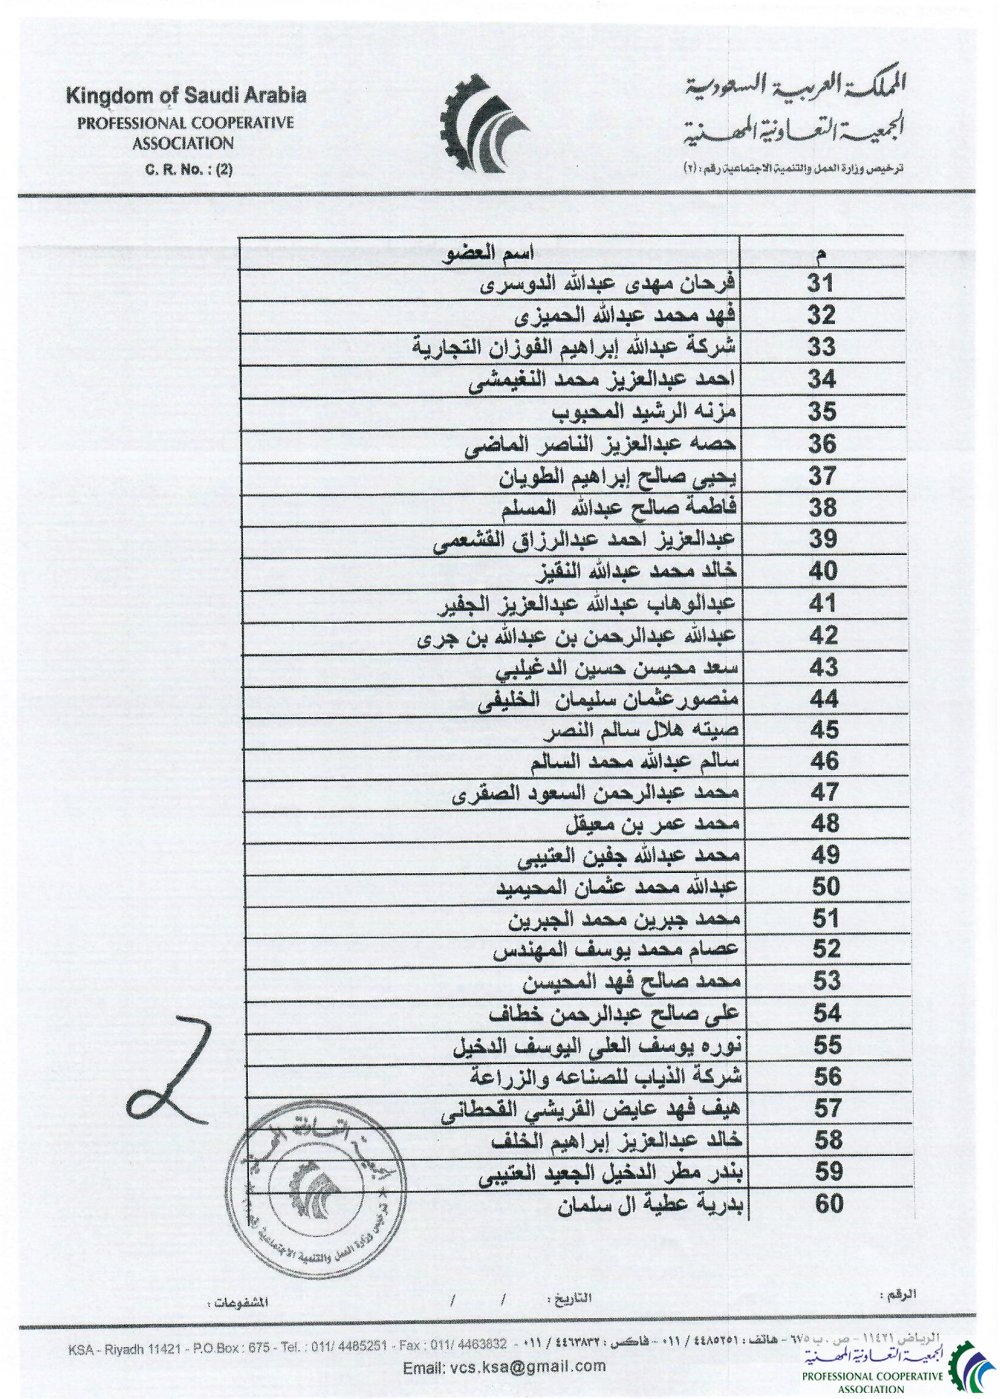 Kingdom of Saudi Arabia
PROFESSIONAL COOPERATIVE
ASSOCIATION
C. R. No. : (2)
المملكة العربية السعودية
الجمعية التعاونية المهنية
ترخيص وزارة العمل والتنمية الاجتماعية رقم : (٢)
م اسم العضو
31 فرحان مهدى عبدالله الدوسرى
32 فهد محمد عبدالله الحميزى
33 شركة عبدالله إبراهيم الفوزان التجارية
34 احمد عبدالعزيز محمد النغيمشى
35 مزنه الرشيد المحبوب
36 حصه عبدالعزيز الناصر الماضى
37 يحيى صالح إبراهيم الطويان
38 فاطمة صالح عبدالله المسلم
39 عبدالعزيز احمد عبدالرزاق القشعمى
40 خالد محمد عبدالله النقيز
41 عبدالوهاب عبدالله عبدالعزيز الجفير
42 عبدالله عبدالرحمن بن عبدالله بن جرى
43 سعد محيسن حسين الدغيلبي
44 منصورعثمان سليمان الخليفى
45 صيته هلال سالم النصر
46 سالم عبدالله محمد السالم
47 محمد عبدالرحمن السعود الصقرى
48 محمد عمر بن معيقل
49 محمد عبدالله جفين العتيبى
50 عبدالله محمد عثمان المحيميد
51 محمد جبرين محمد الجبرين
52 عصام محمد يوسف المهندس
53 محمد صالح فهد المحيسن
54 على صالح عبدالرحمن خطاف
55 نوره يوسف العلى اليوسف الدخيل
56 شركة الذياب للصناعه والزراعة
57 هيف فهد عايض القريشي القحطانى
58 خالد عبدالعزيز إبراهيم الخلف
59 بندر مطر الدخيل الجعيد العتيبى
60 بدرية عطية ال سلمان
2
الجمعية التعاونية المهنية
ترخيص وزارة العمل والتنمية الاجتماعية رقم
الرقم : التاريخ : / / المشفوعات :
الرياض ١١٤٢١ - ص . ب ٦٧٥ - هاتف : ٤٤٨٥٢٥١ / ٠١١ - فاكس : ٤٤٦٣٨٣٢ / ٠١١ - KSA - Riyadh 11421 - P.O Box : 675 - Tel. : 011/ 4485251 - Fax : 011/ 4463832
Email: vcs.ksa@gmail.com
الجمعية التعاونية المهنية
PROFESSIONAL COOPERATIVE
ASSOCIATION